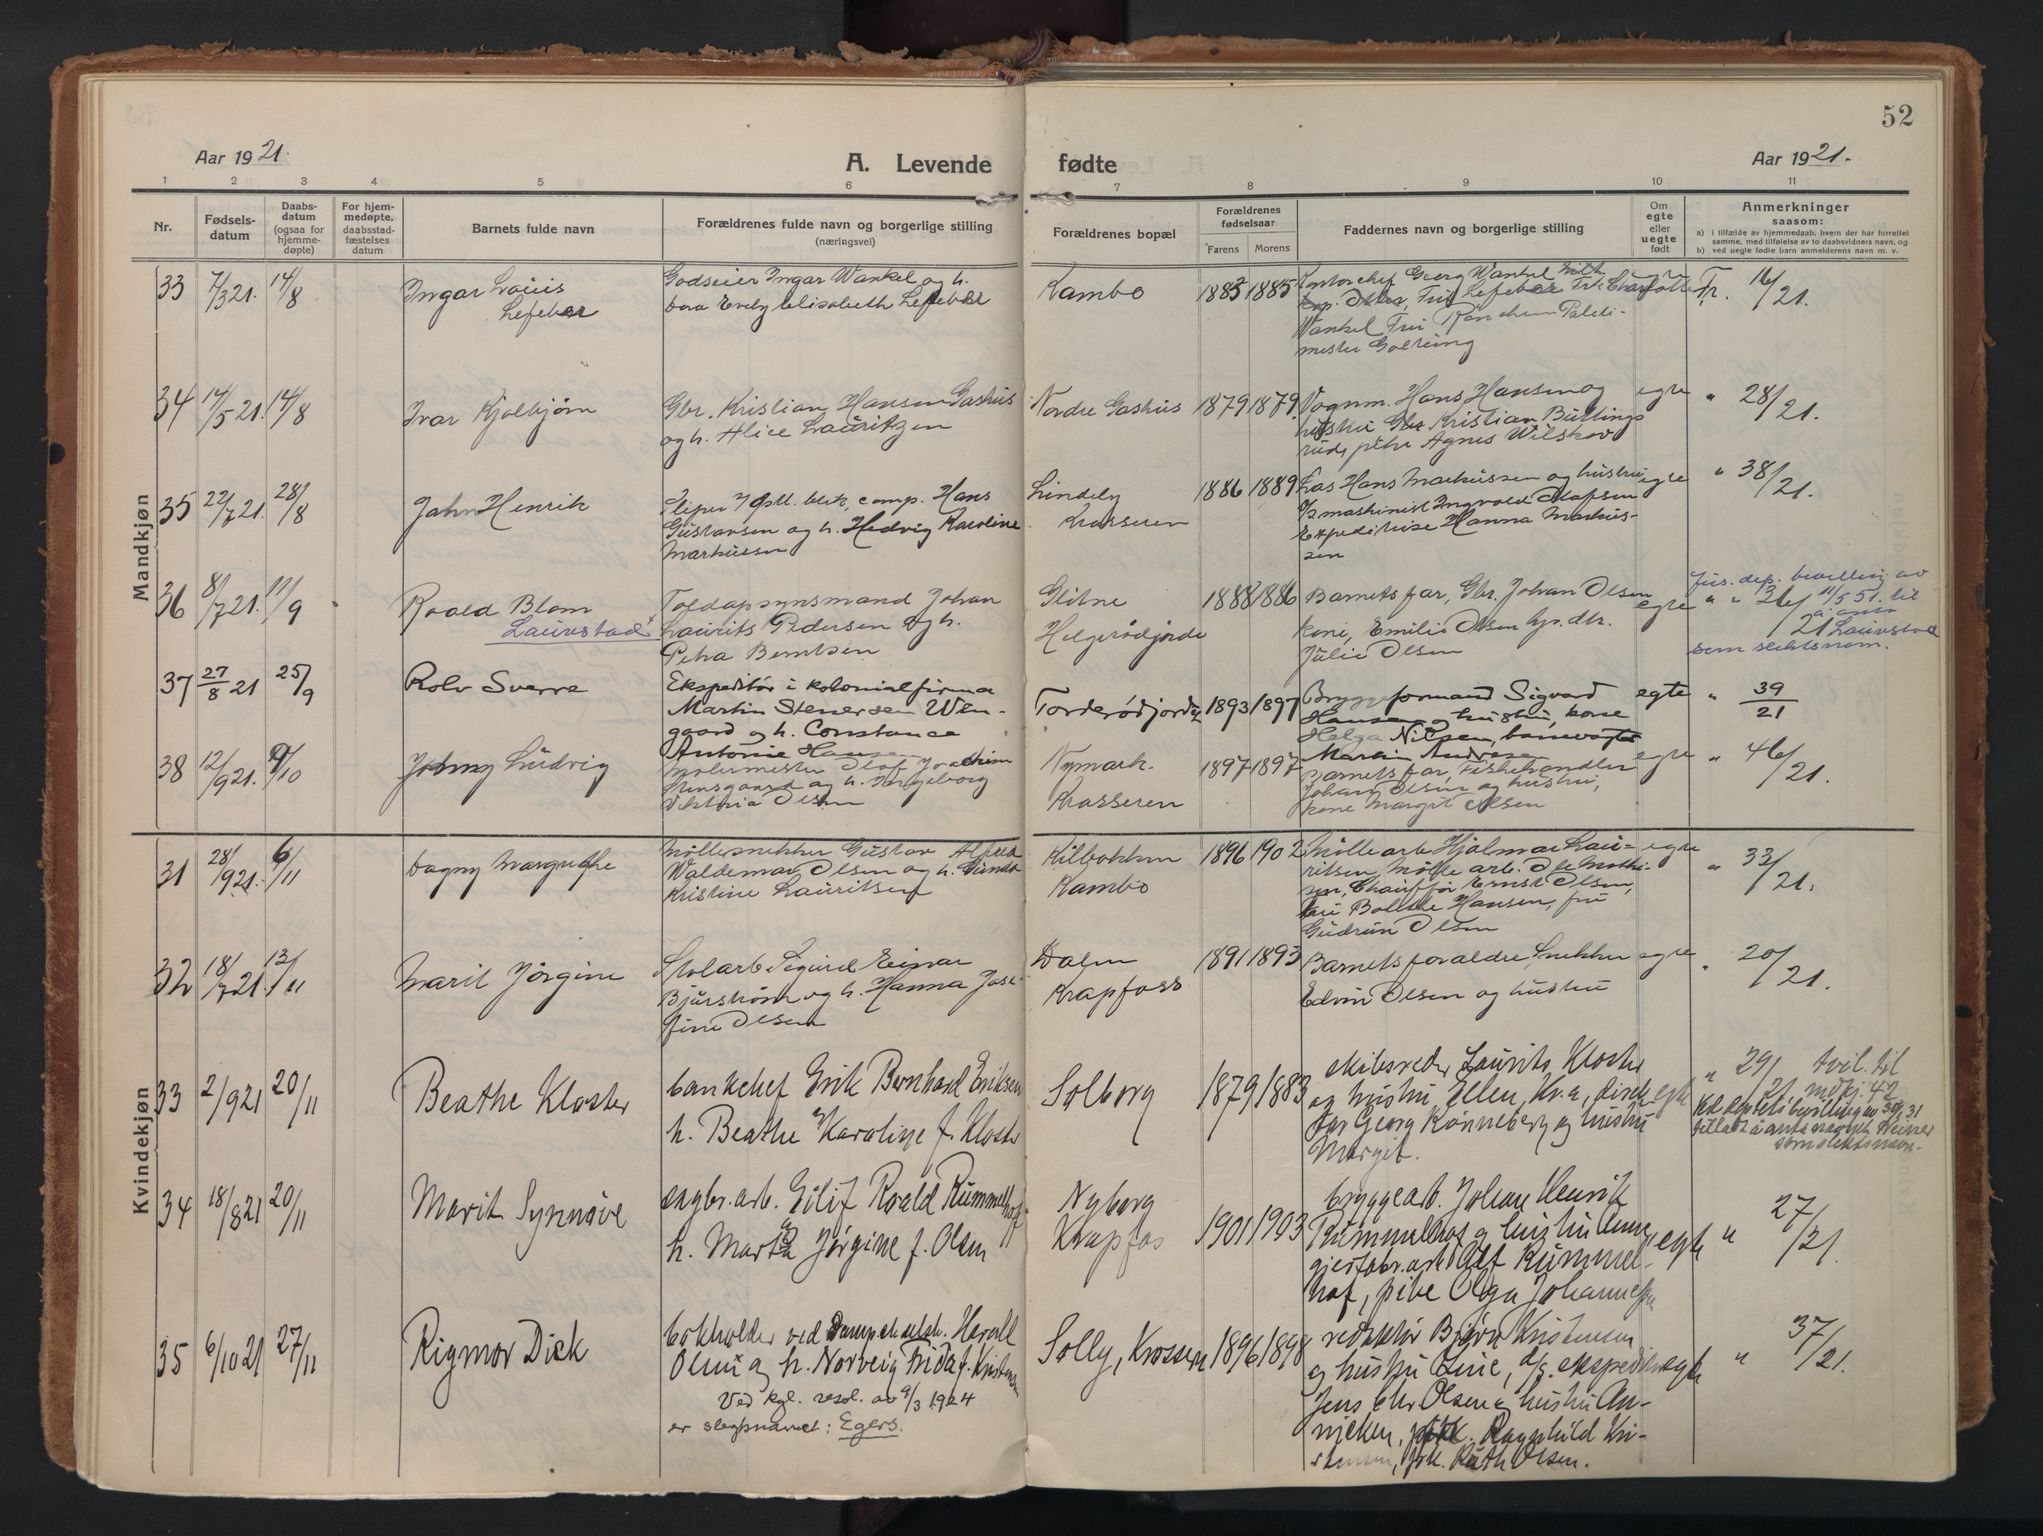 52
Aar 1921.
A. Levende
fødte
Aar 1921.
1 2 3 4 5 6 7 8 9 10 11
Nr.
Fødsels-
datum
Daabs-
datum
(ogsaa for
hjemme-
døpte)
For hjem-
medøpte,
daabsstad-
fæstelses
datum
Barnets fulde navn
Forældrenes fulde navn og borgerlige stilling
(næringsvei)
Forældrenes bopæl
Forældrenes
fødselsaar
Farens
Morens
Faddernes navn og borgerlige stilling
Om
egte
eller
uegte
født
Anmerkninger
saasom:
a) i tilfælde av hjemmedaab, hvem der har forrettet
samme, med tilføielse av to daabsvidners navn, og
b) ved uegte fødte barn anmelderens navn m. v.
Mandkjøn
33 7/3 21. 14/8
Ingar Louis
Lefebar
Godseier Ingar Wankel og h.
Elisabeth
Kambo 1885 1885
Georg Wankel
Wankel Fru
Tr. 16/21.
34 17/5 21. 14/8
Ivar Kjølbjørn
Gbr. Kristian Hansen Gashus
og h. Alice Lauritzen
Nordre Gashus 1879 1879.
Vognm. Hans Hansen og
hustru Gbr Kristian
pike Agnes Wilskov
egte " 28/21.
35 22/7 21. 28/8
John Henrik
Hans
Gustavsen og h. Hedvig Karoline
Markussen
Lindely
Krosseren
1886 1889
Hans Markussen og hustru
maskinist Ingvald Olafsen
Hanna Markus-
sen
egte " 38/21.
36 8/7 21. 11/9
Roald Blom
Laurstad
Toldopsynsmand Johan
Laurits Pedersen og h.
Petra Berntsen
Glitne
Helgerødjorde
1888 1886
Barnets far, Gbr. Johan Olsen
kone, Emilie Olsen
Julie Olsen
egte " 36/21
Jus. dep. bevilling av
11/5 51. til
å anta
Laurstad
som slektsnavn.
37 27/8 21 25/9
Rolv Sverre
Ekspeditør i kolonialfirma
Martin Stenersen Wen-
gaard og h. Constance
Antonie Hansen
Torderødjordet 1893 1897
Bryggeformand Sigvard
Hansen og hustru, kone
Helga Nilsen, banevogter
Martin Andresen
egte " 39/21
38 12/9 21. 9/10
Johny Ludvig
Malermester Olof Joachim
og h. Ingeborg
Olsen
Nymark.
Krosseren
1897 1897
Barnets far, Fiskehandler
Johan Olsen og hustru,
kone Margit Olsen
egte " 46/21.
Kvindekjøn
31 28/9 21. 6/11
Dagny Margrethe
Møllesnekker Gustav Alfred
Waldemar Olsen og h.
Kristine Lauritsen
Kilbakken
Kambo
1896 1902
Møllearb Hjalmar Lau-
ritsen, Møllearb. Ole Mathi-
sen, Chauffør Ernst Olsen,
fru Bolette Hansen, fru
Gudrun Olsen
egte " 33/21.
32 18/7 21. 13/11
Marit Jørgine
Stolarb Sigurd Einar
Bjurstrøm og h. Hanna Jose-
fine Olsen
Dalen
Krapfoss
1891 1893
Barnets foraldre, Snekker
Edvin Olsen og hustru
egte " 20/21.
33 2/9 21 20/11
Beathe Kloster
bankchef Erik Bernhard Eriksen
h. Beathe Karoline f. Kloster
Solborg 1879 1883
skibsreder Laurits Kloster
og hustru Ellen, Kr.a, direk-
tør Georg Rønneberg og hustru
Margit.
egte " 29/21
tvil. til
30/31
som slektsnavn.
34 18/8 21 20/11
Marit Synnøve
sagbr.arb. Eilif Roald Rummelhof
h. Marta Jørgine f. Olsen
Nyborg
Krapfos
1901 1903
bryggearb. Johan Henrik
Rummelhof og hustru Anne,
Alf Rummel-
hof, pike Olga Johannessen
egte " 27/21.
35 6/10 21 27/11
Rigmor Dick
bokholder ved Dampsk.selsk. Harald
Olsen og h. Norveig Frida f. Kristensen
Ved kgl. resol. av 9/3 1924
er slegtsnavnet: Egers.
Solly, Krossern 1896 1898
redaktør Bjørn Kristensen
og hustru Line, d/s. ekspeditør
Jens Chr Olsen og hustru An-
nicken, frk. Ragnhild Kri-
stensen, frk. Ruth Olsen.
egte " 37/21.